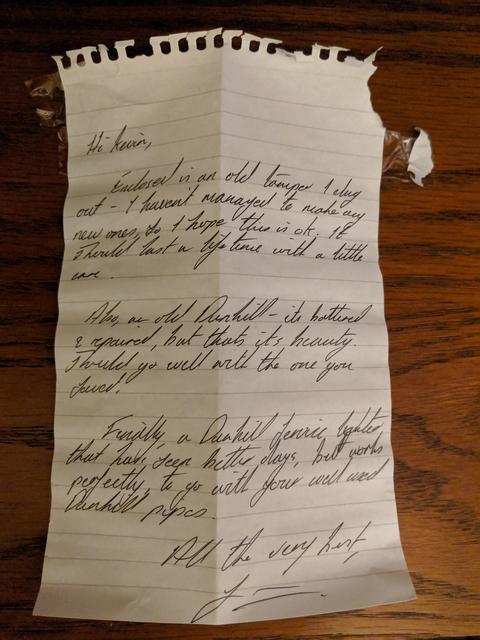 Hi Kevin,
Enclosed is an old tamper I dug
out - I haven't managed to make any
new ones, so I hope this is ok. It
should last a lifetime with a little
care.
Also, an old Dunhill - its battered
& repaired, but thats it's beauty.
Should go well with the one you
saved.
Finally a Dunhill lighter,
that has seen better days, but works
perfectly, to go with your well used
Dunhill pipes.
All the very best,